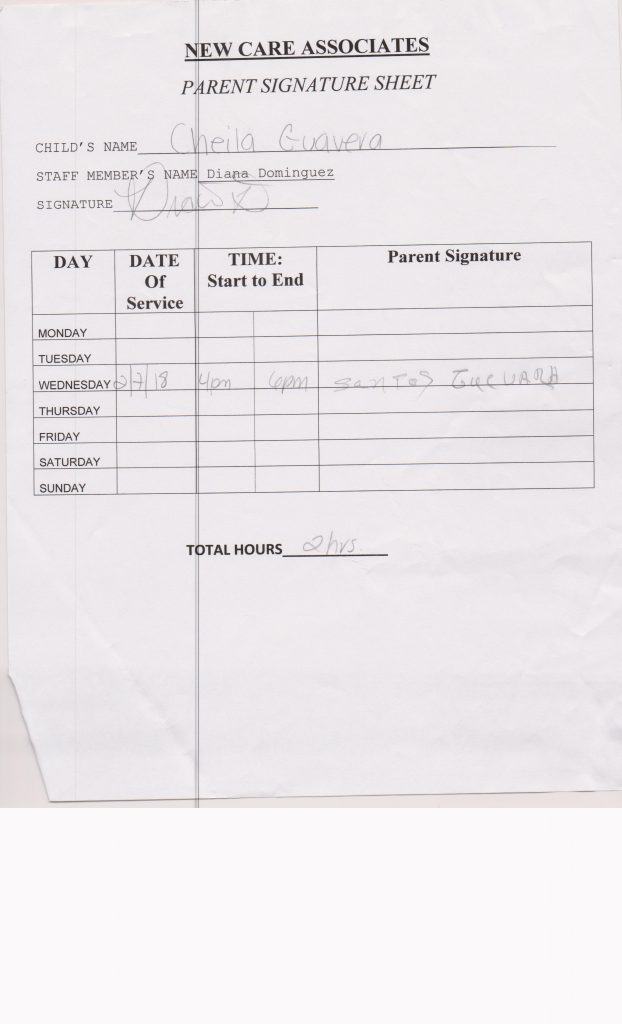 NEW CARE ASSOCIATES
PARENT SIGNATURE SHEET
CHILD'S NAME Cheila Guavera
STAFF MEMBER'S NAME Diana Dominguez
SIGNATURE
DAY DATE Of Service TIME: Start to End Parent Signature
MONDAY
TUESDAY
WEDNESDAY 2/7/18 4pm 6pm Santos GueVARA
THURSDAY
FRIDAY
SATURDAY
SUNDAY
TOTAL HOURS 2hrs.